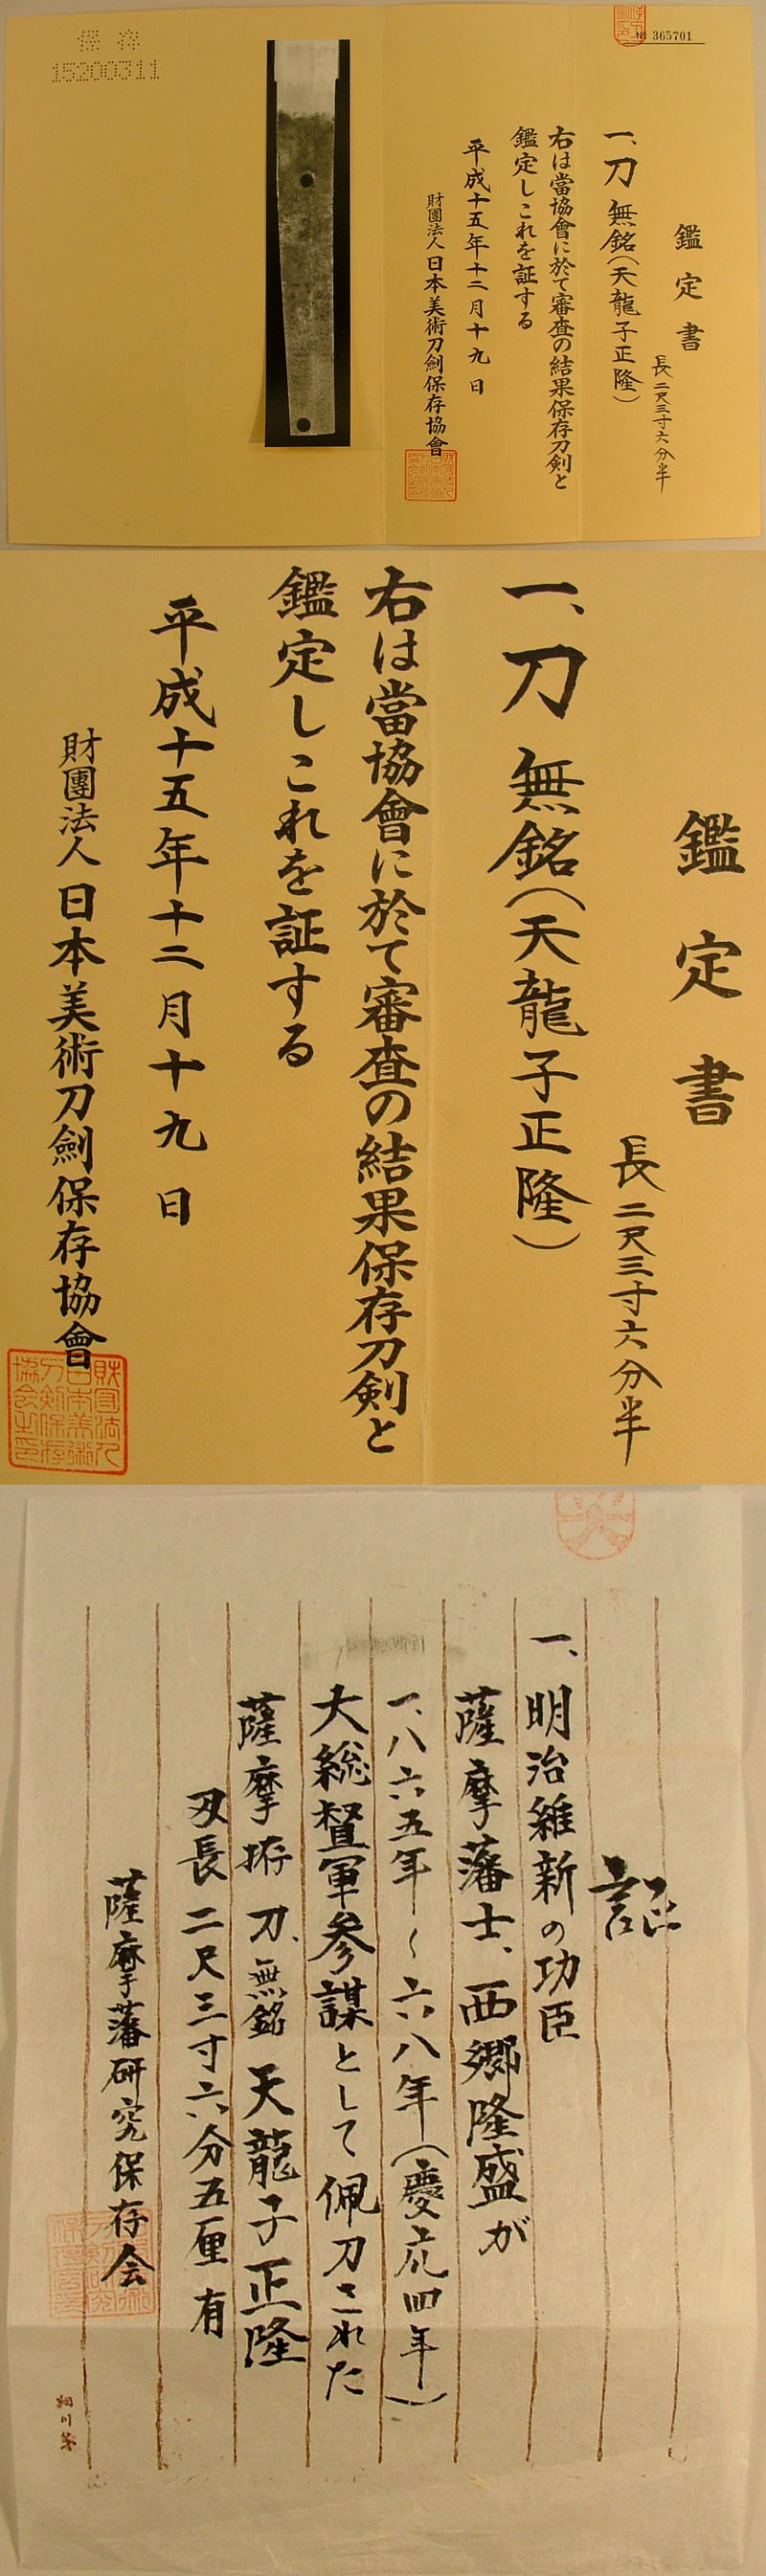 保存
15200311
№ 365701
鑑定書
長二尺三寸六分半
一、刀 無銘(天龍子正隆)
右は當協會に於て審査の結果保存刀剣と
鑑定しこれを証する
平成十五年十二月十九日
財團法人 日本美術刀劍保存協會
鑑定書
長二尺三寸六分半
一、刀 無銘(天龍子正隆)
右は當協會に於て審査の結果保存刀剣と
鑑定しこれを証する
平成十五年十二月十九日
財團法人 日本美術刀劍保存協會
証
一、明治維新の功臣
薩摩藩士、西郷隆盛が
一、八六五年〜六八年(慶応四年)
大総督軍参謀として佩刀された
薩摩拵 刀、無銘 天龍子正隆
刃長 二尺三寸六分五厘 有
薩摩藩研究保存会